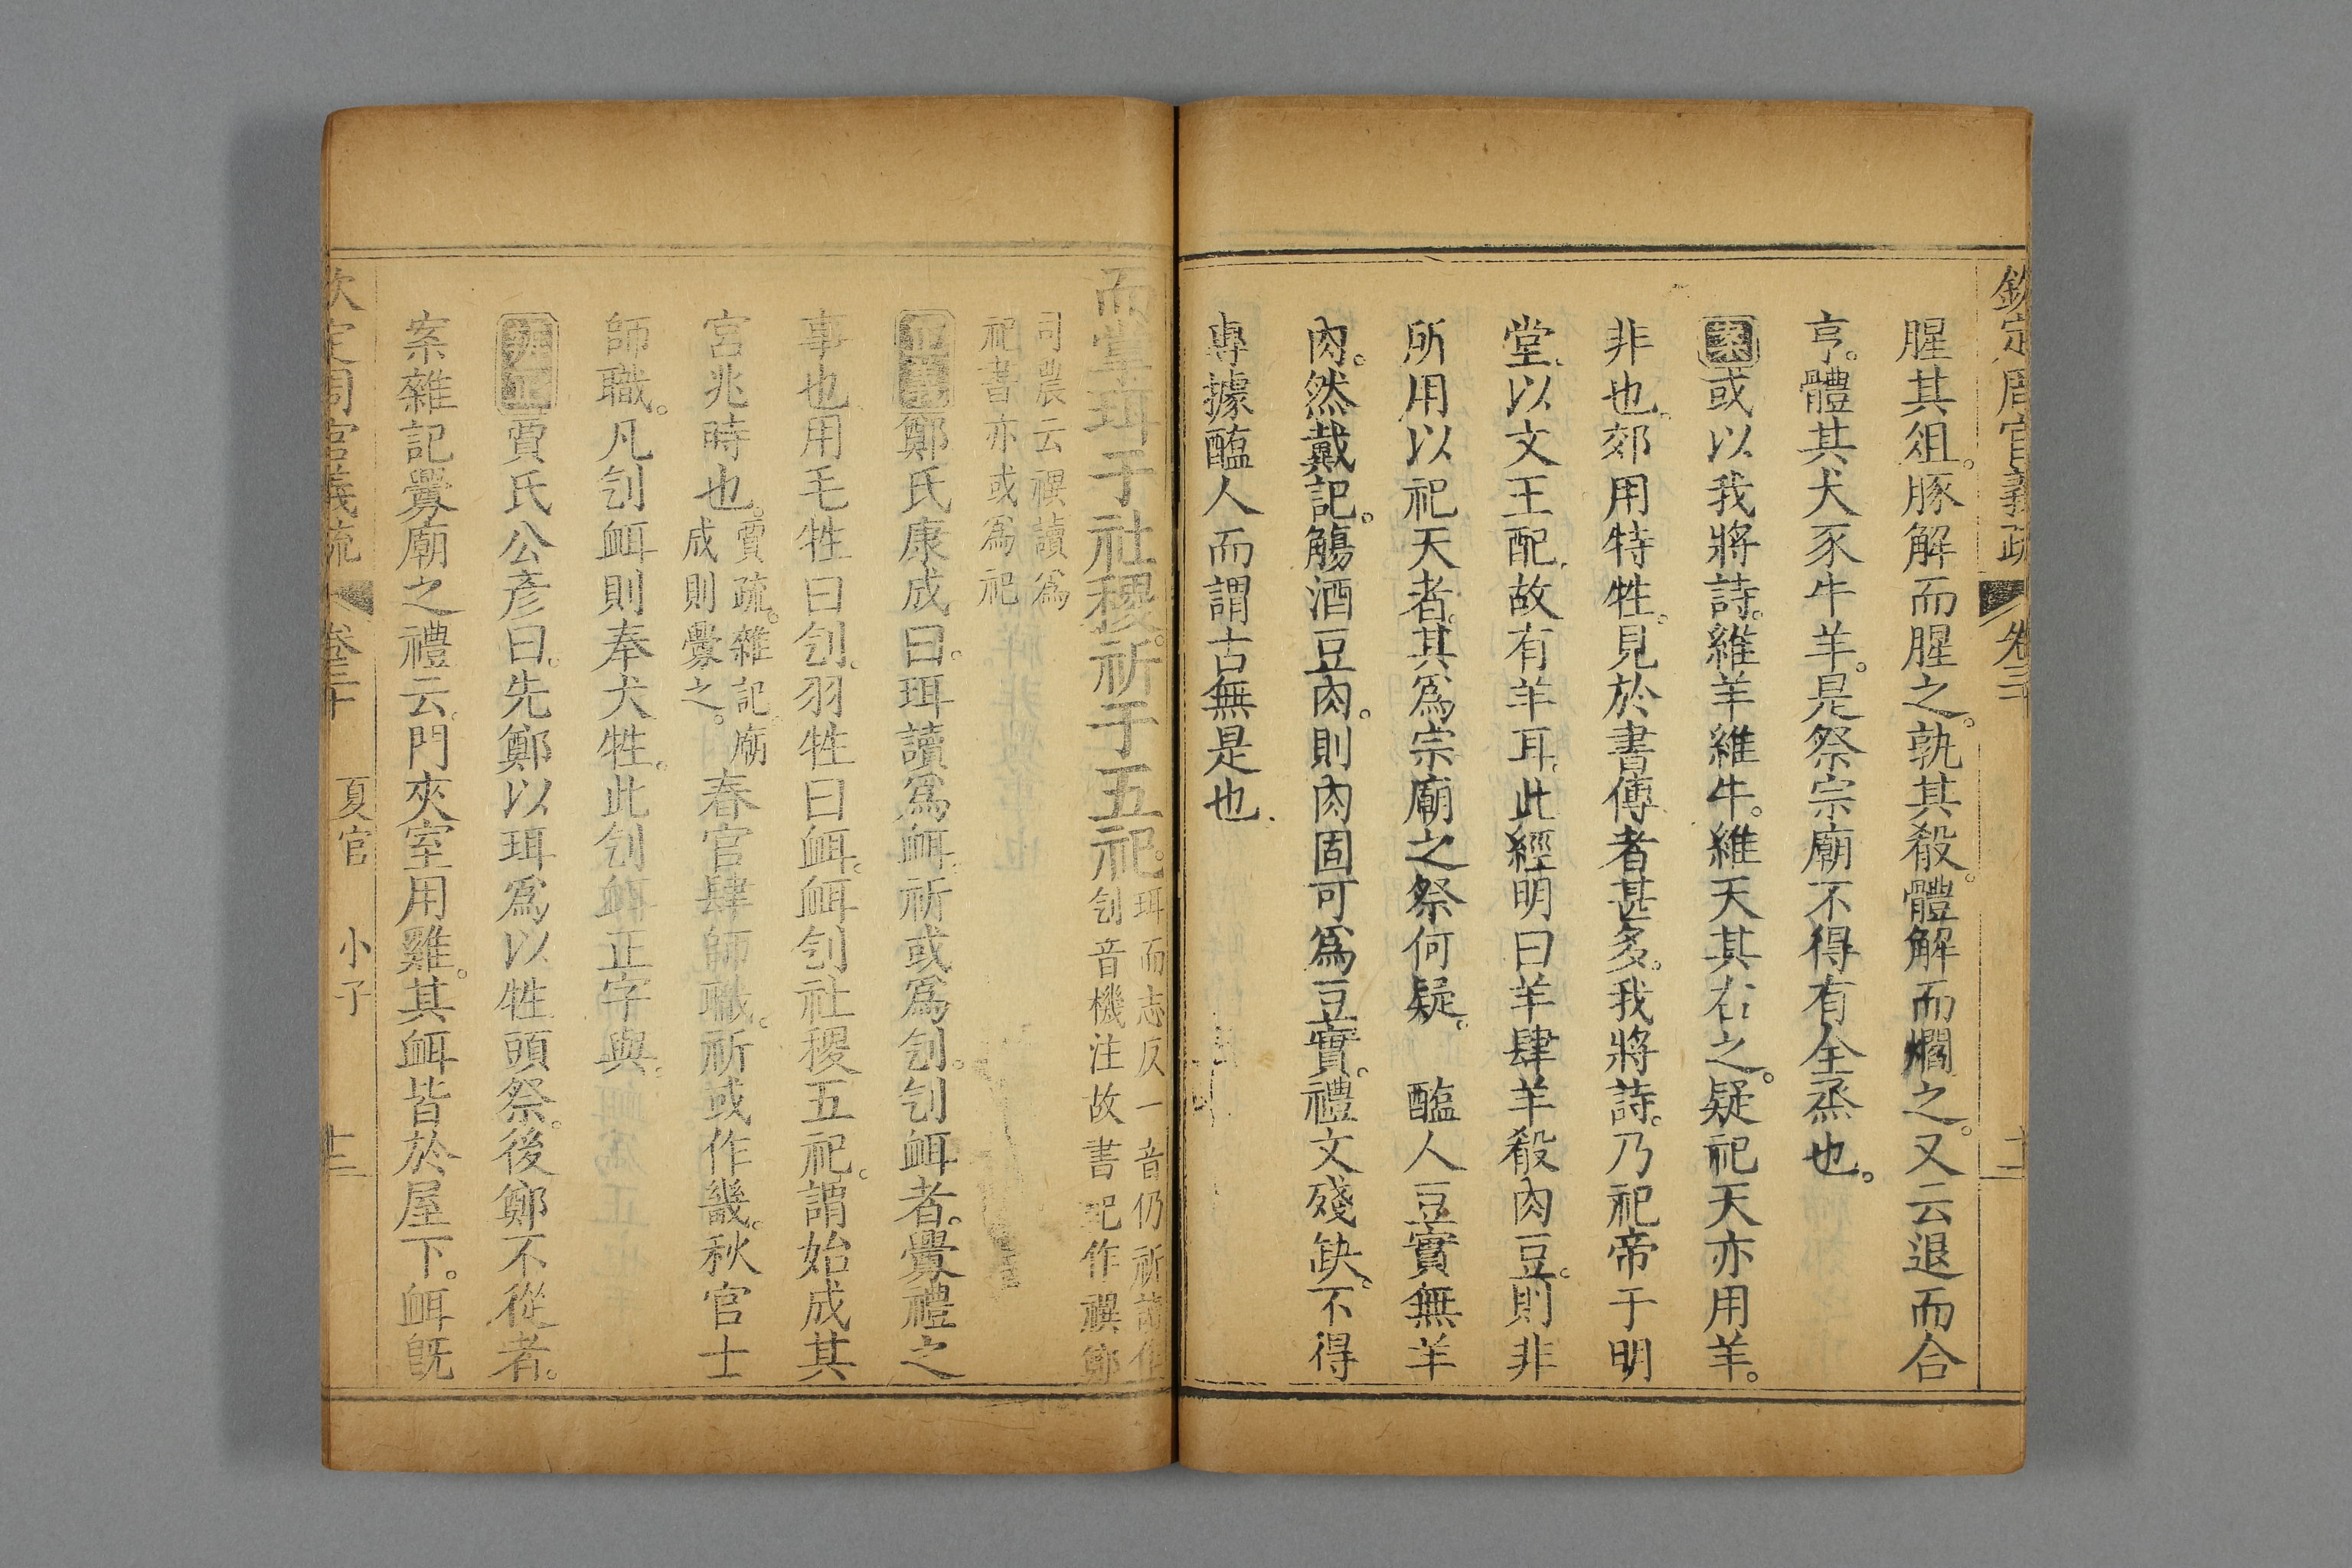 欽定周官義疏 卷三十 十二
腥其俎。豚解而腥之。孰其殽。體解而爓之。又云退而合
亨。體其犬豕牛羊。是祭宗廟不得有全烝也。
案或以我將詩。維羊維牛。維天其右之。疑祀天亦用羊。
非也。郊用特牲。見於書傳者甚多。我將詩。乃祀帝于明
堂。以文王配。故有羊耳。此經明曰羊肆羊殽肉豆。則非
所用以祀天者。其爲宗廟之祭何疑。 醢人豆實無羊
肉。然戴記。觴酒豆肉。則肉固可爲豆實。禮文殘缺。不得
專據醢人而謂古無是也。
而掌珥于社稷。祈于五祀。珥而志反一音仍祈讀作
刉音機注故書祀作禩鄭
司農云禩讀爲
祀書亦或爲祀
正義鄭氏康成曰。珥讀爲衈。祈或爲刉。刉衈者。釁禮之
事也用毛牲曰刉。羽牲曰衈。衈刉社稷五祀。謂始成其
宮兆時也。賈疏。雜記。廟成則釁之。春官肆師職。祈或作畿。秋官士
師職。凡刉衈則奉犬牲。此刉衈正字與。
辨正賈氏公彥曰。先鄭以珥爲以牲頭祭。後鄭不從者。
案雜記釁廟之禮云。門夾室用雞。其衈皆於屋下。衈旣
欽定周官義疏 卷三十 夏官 小子 十二